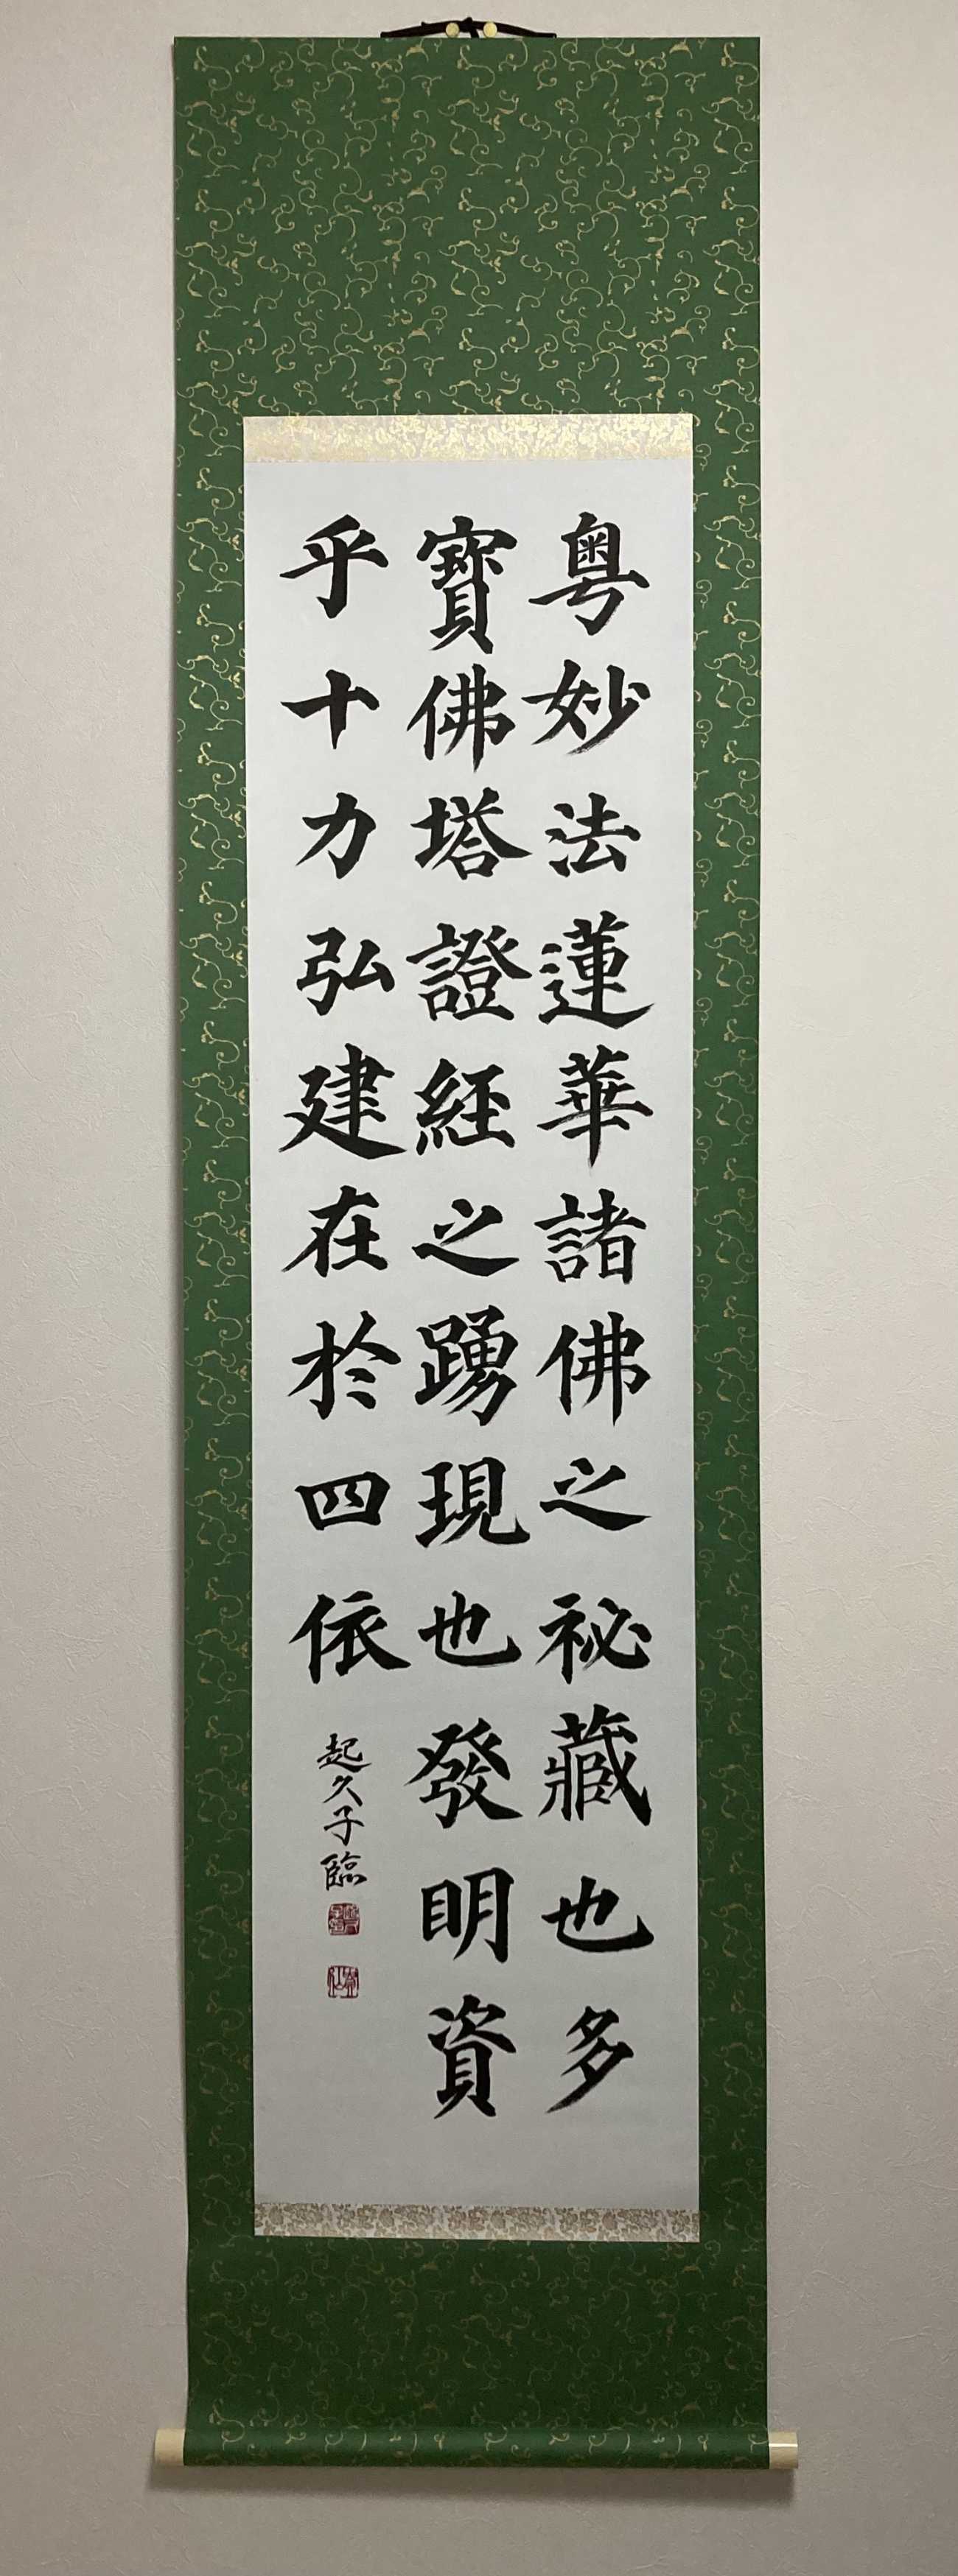 粤妙法蓮華諸佛之祕藏也多
寶佛塔證經之踴現也發明資
乎十力弘建在於四依
起久子臨